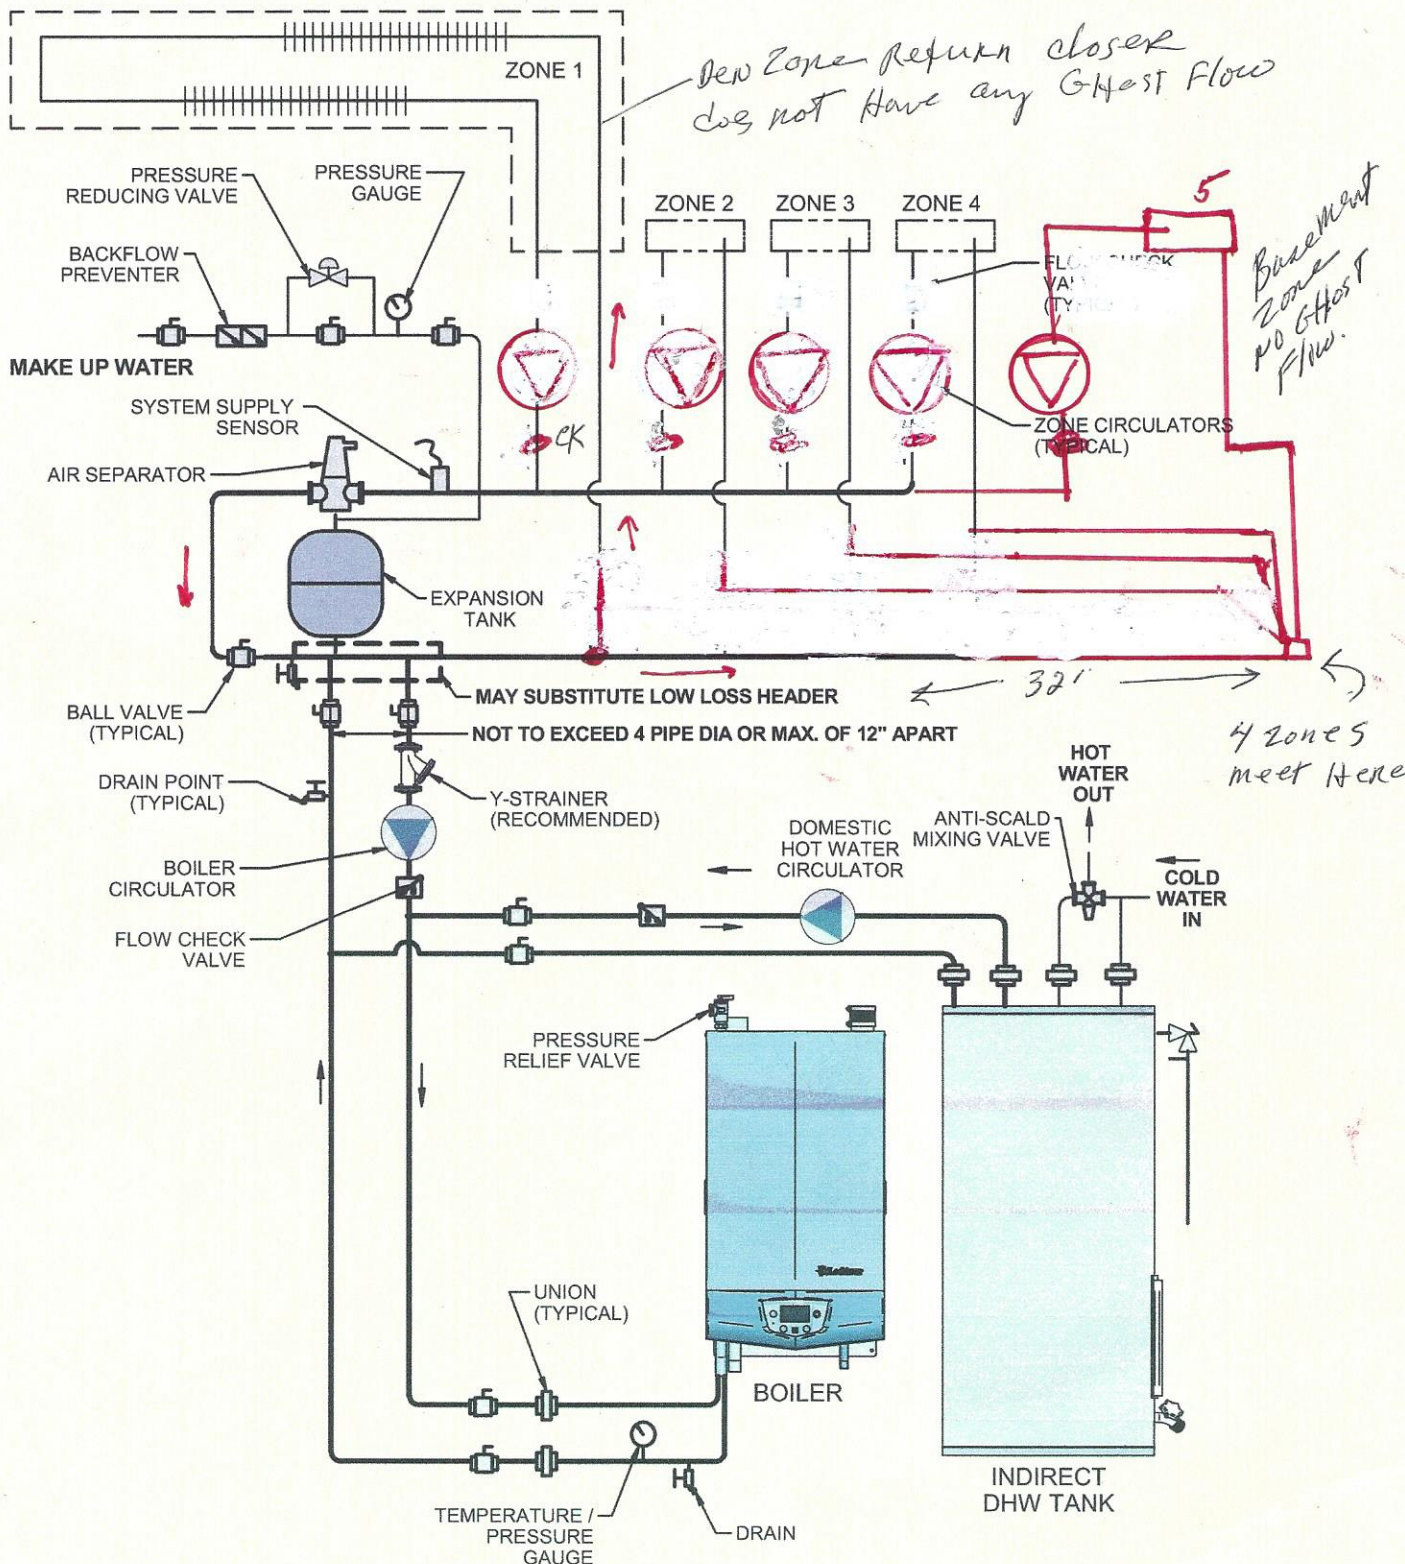 ZONE 1
Den Zone Return closer
does not Have any GHost Flow
PRESSURE
REDUCING VALVE
PRESSURE
GAUGE
BACKFLOW
PREVENTER
MAKE UP WATER
ZONE 2
ZONE 3
ZONE 4
5
Basement
Zone
NO GHost
Flow.
VAL
(TYP
SYSTEM SUPPLY
SENSOR
CK
ZONE CIRCULATORS
(TYPICAL)
AIR SEPARATOR
EXPANSION
TANK
32'
MAY SUBSTITUTE LOW LOSS HEADER
BALL VALVE
(TYPICAL)
NOT TO EXCEED 4 PIPE DIA OR MAX. OF 12" APART
4 zones
meet Here
DRAIN POINT
(TYPICAL)
Y-STRAINER
(RECOMMENDED)
HOT
WATER
OUT
ANTI-SCALD
MIXING VALVE
DOMESTIC
HOT WATER
CIRCULATOR
BOILER
CIRCULATOR
COLD
WATER
IN
FLOW CHECK
VALVE
PRESSURE
RELIEF VALVE
UNION
(TYPICAL)
BOILER
INDIRECT
DHW TANK
TEMPERATURE /
PRESSURE
GAUGE
DRAIN